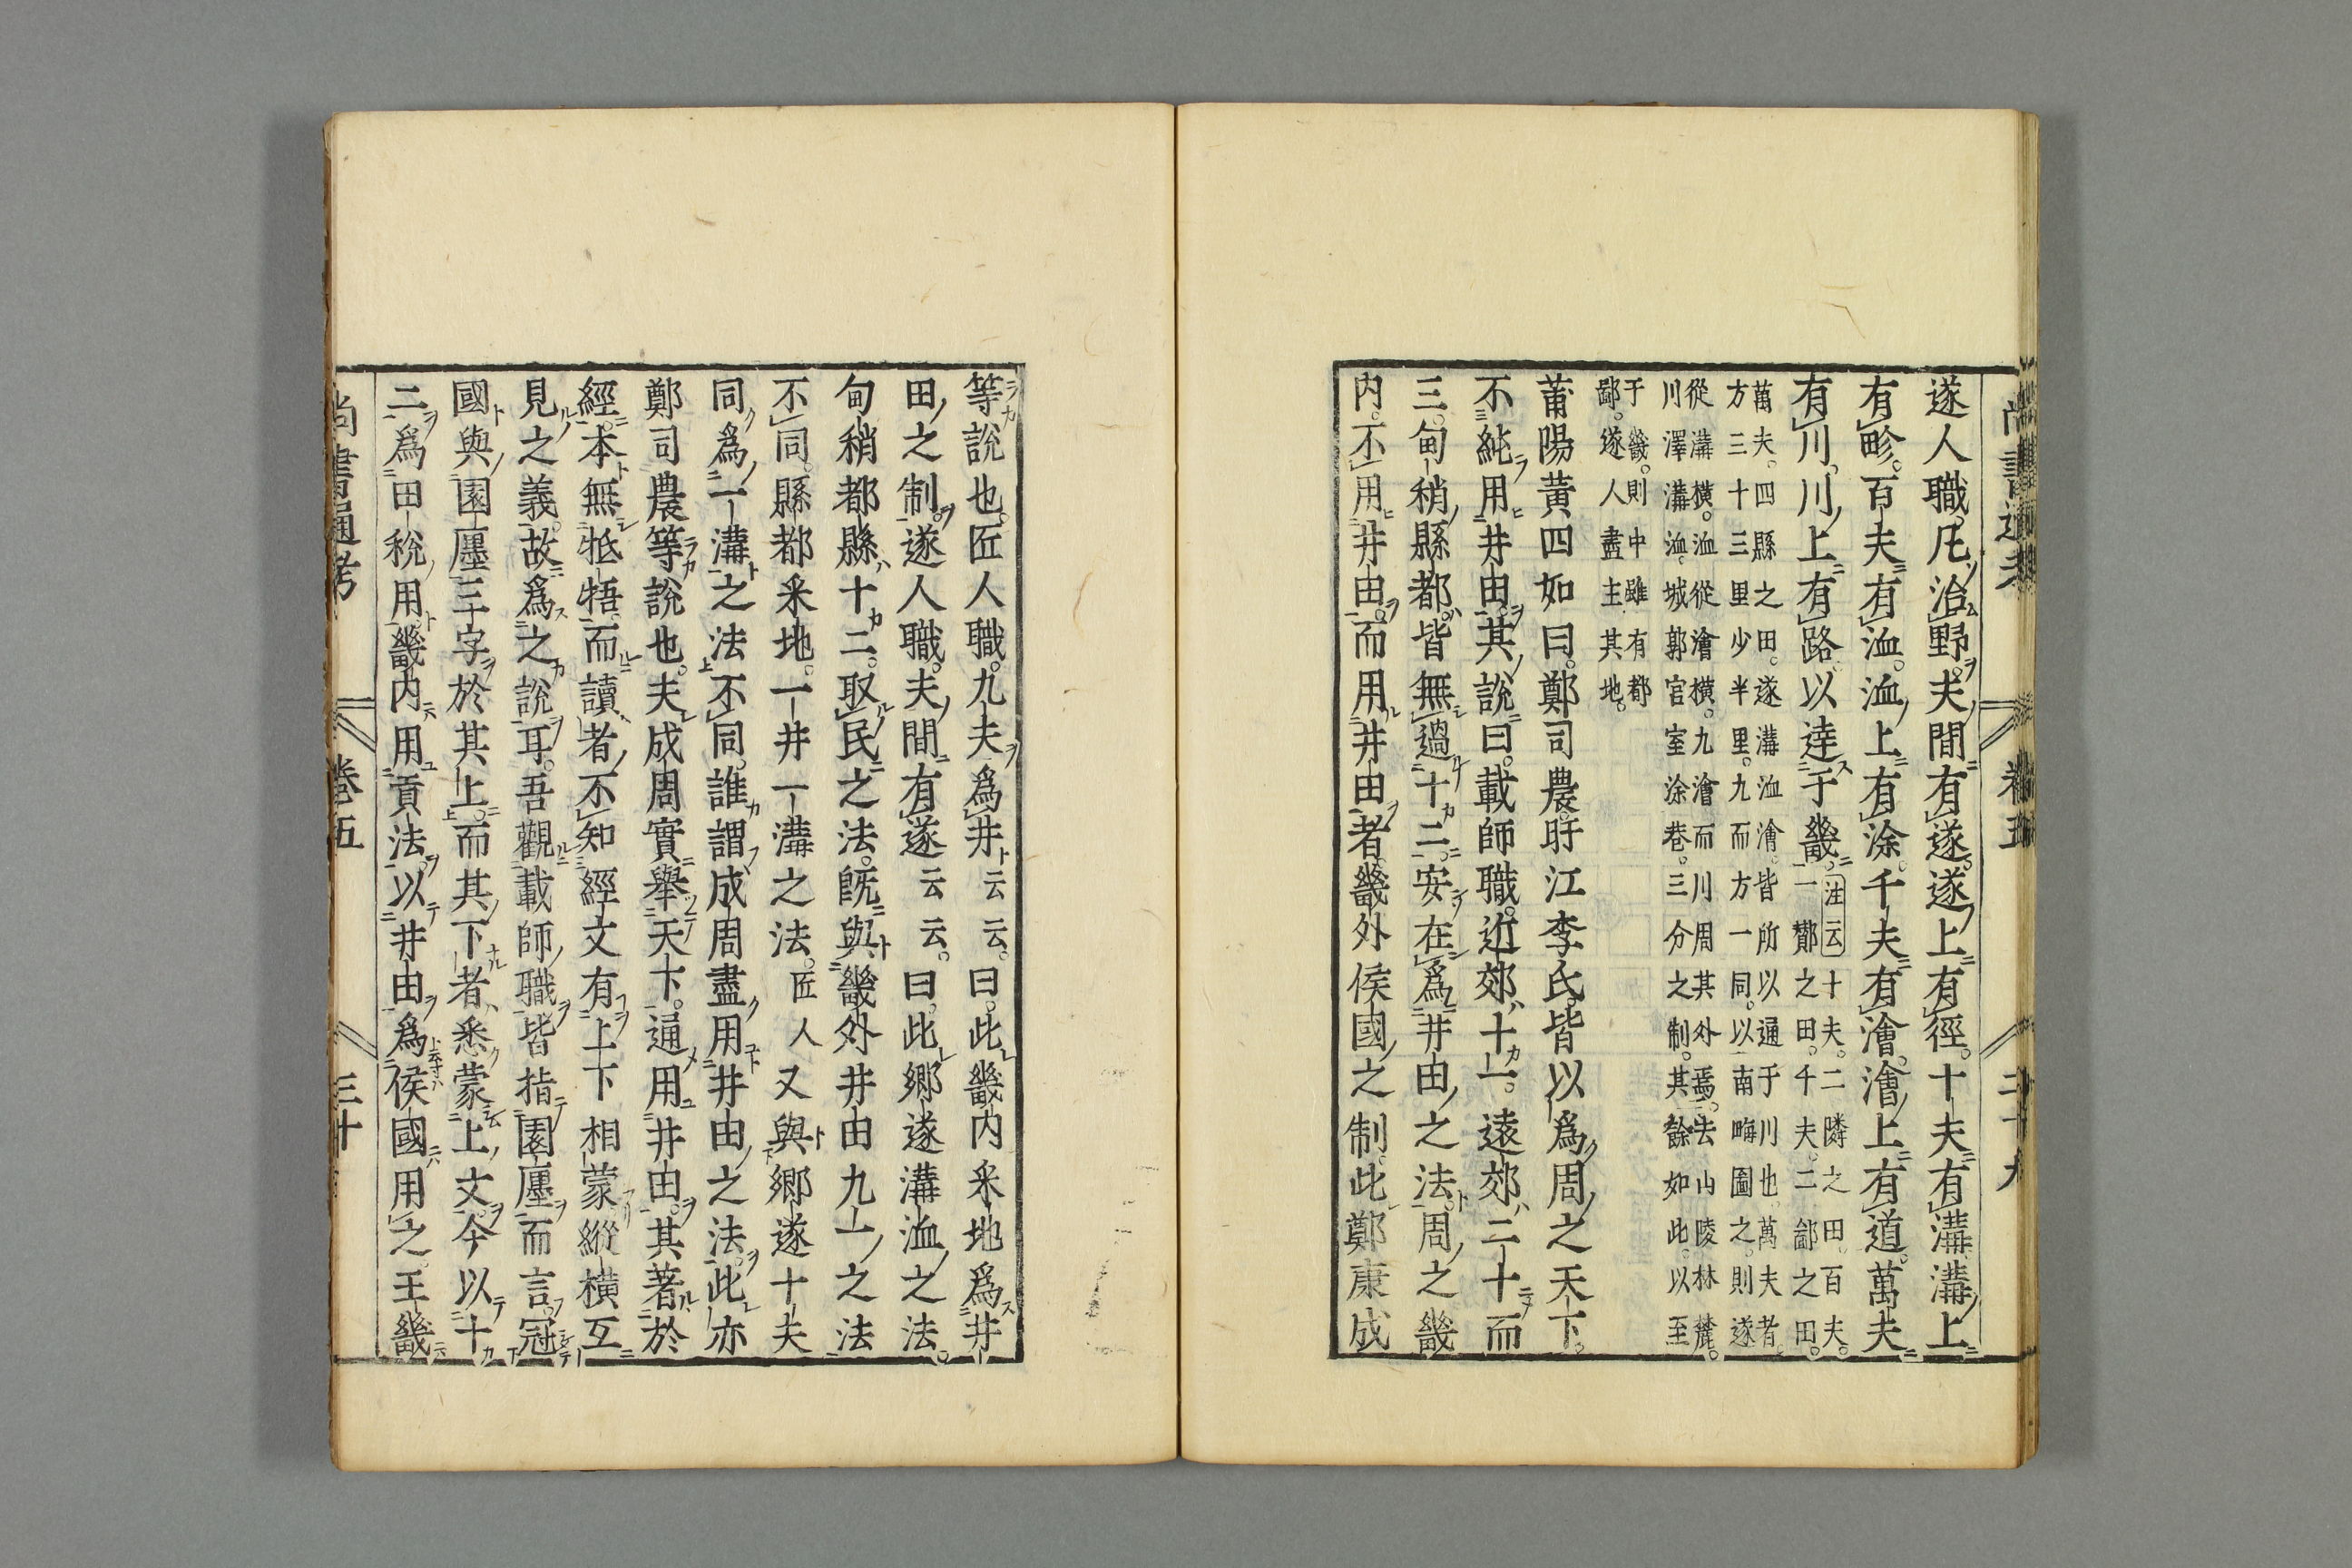 尚書通考 卷五 二十九
遂人職。凡治野。夫間有遂。遂上有徑。十夫有溝。溝上
有畛。百夫有洫。洫上有涂。千夫有澮。澮上有道。萬夫
有川。川上有路。以達于畿。注云十夫。二隣之田。百夫。
一酇之田。千夫。二鄙之田。
萬夫。四縣之田。遂溝洫澮。皆所以通于川也。萬夫者。
方三十三里少半里。九而方一同。以南畮圖之。則遂
從溝橫。洫從澮橫。九澮而川周其外焉。去山陵林麓。
川澤溝洫。城郭宮室涂巷。三分之制。其餘如此。以至
于畿。則中雖有都
鄙。遂人盡主其地。
莆陽黃四如曰。鄭司農。旴江李氏。皆以爲周之天下。
不純用井田。其說曰。載師職。近郊十一。遠郊二十而
三。甸稍縣都。皆無過十二。安在爲井田之法。周之畿
内。不用井田。而用井田者。畿外侯國之制。此鄭康成
等說也。匠人職。九夫爲井云云。曰。此畿内采地爲井
田之制。遂人職。夫間有遂云云。曰。此鄉遂溝洫之法。
甸稍都縣十二。取民之法。既與畿外井田九一之法
不同。縣都采地。一井一溝之法。匠人又與鄉遂十夫
同爲一溝之法不同。誰謂成周盡用井田之法。此亦
鄭司農等說也。夫成周實舉天下。通用井田。其著於
經。本無牴牾。而讀者不知經文有上下相蒙縱橫互
見之義。故爲之說耳。吾觀載師職皆指園廛而言。冠
國與園廛三字於其上。而其下者悉蒙上文。今以十
二爲田稅。用畿内用貢法。以井田爲侯國用之。王畿
尚書通考 卷五 三十